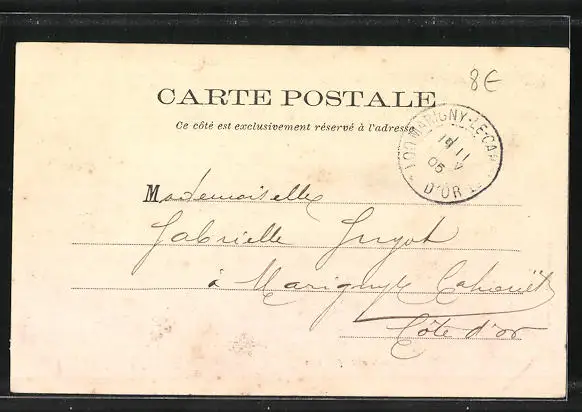 8€
CARTE POSTALE
Ce côté est exclusivement réservé à l'adresse
MARIGNY-LE-CAH
19 11
05
D'OR
Mademoiselle
Gabrielle Guyot
à Marigny le Cahouët
Côte d'or